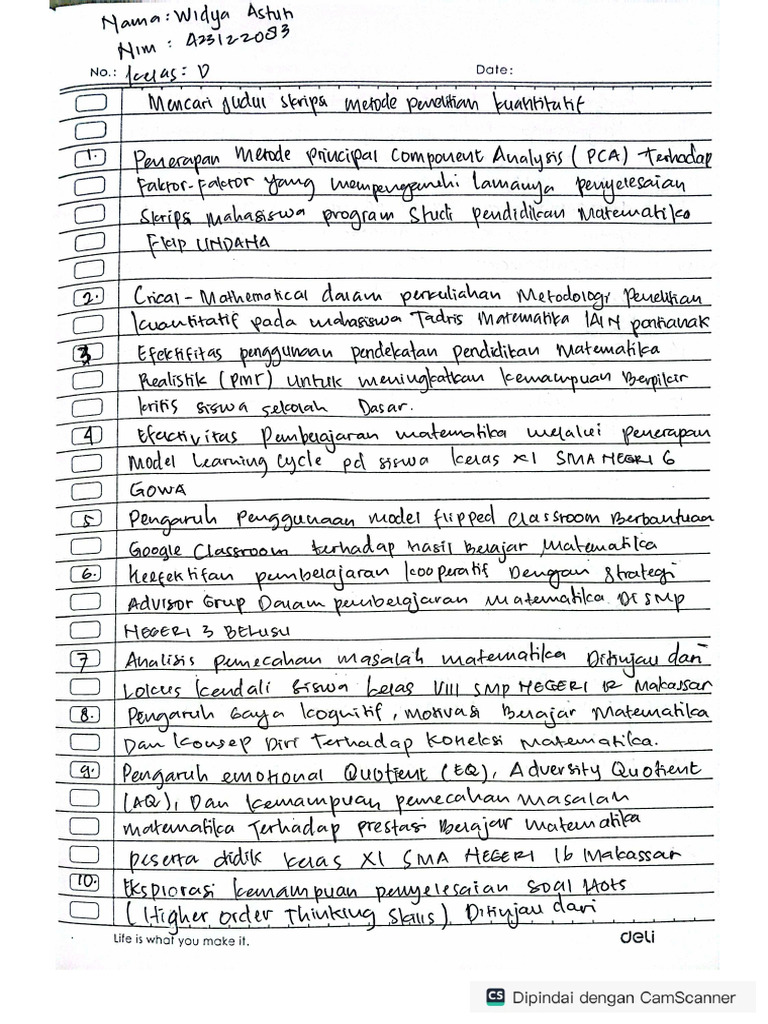 Nama : Widya Astuti
Nim : A23122083
No.: kelas : D Date:
Mencari judul skripsi metode penelitian kuantitatif
1. Penerapan Metode principal Component Analysis (PCA) Terhadap
Faktor-Faktor yang mempengaruhi Lamanya penyelesaian
Skripsi Mahasiswa program Studi pendidikan Matematika
FKIP UNDANA
2. Crical - Mathematical dalam perkuliahan Metodologi Penelitian
kuantitatif pada mahasiswa Tadris Matematika IAIN pontianak
3 Efektifitas penggunaan pendekatan pendidikan Matematika
Realistik (PMR) Untuk meningkatkan kemampuan Berpikir
kritis siswa sekolah Dasar.
4 Efectivitas Pembelajaran matematika melalui penerapan
Model Learning Cycle pd siswa kelas XI SMA NEGRI 6
GOWA
5 Pengaruh Penggunaan model flipped Classroom Berbantuan
Google Classroom terhadap hasil Belajar Matematika
6. Keefektifan pembelajaran kooperatif Dengan Strategi
Advisor Grup Dalam pembelajaran Matematika Di SMP
NEGERI 3 BELUSU
7 Analisis pemecahan masalah matematika Ditinjau dari
Lokus kendali siswa kelas VIII SMP NEGERI 12 Makassar
8. Pengaruh Gaya Kognitif, Motivasi Belajar Matematika
Dan Konsep Diri Terhadap Koneksi Matematika.
9. Pengaruh emotional Quotient (EQ), Adversity Quotient
(AQ), Dan kemampuan pemecahan masalah
matematika Terhadap prestasi Belajar matematika
peserta didik kelas XI SMA NEGERI 16 Makassar
10. Eksplorasi kemampuan penyelesaian Soal Hots
(Higher order Thinking Skills) Ditinjau dari
Life is what you make it. deli
CS Dipindai dengan CamScanner